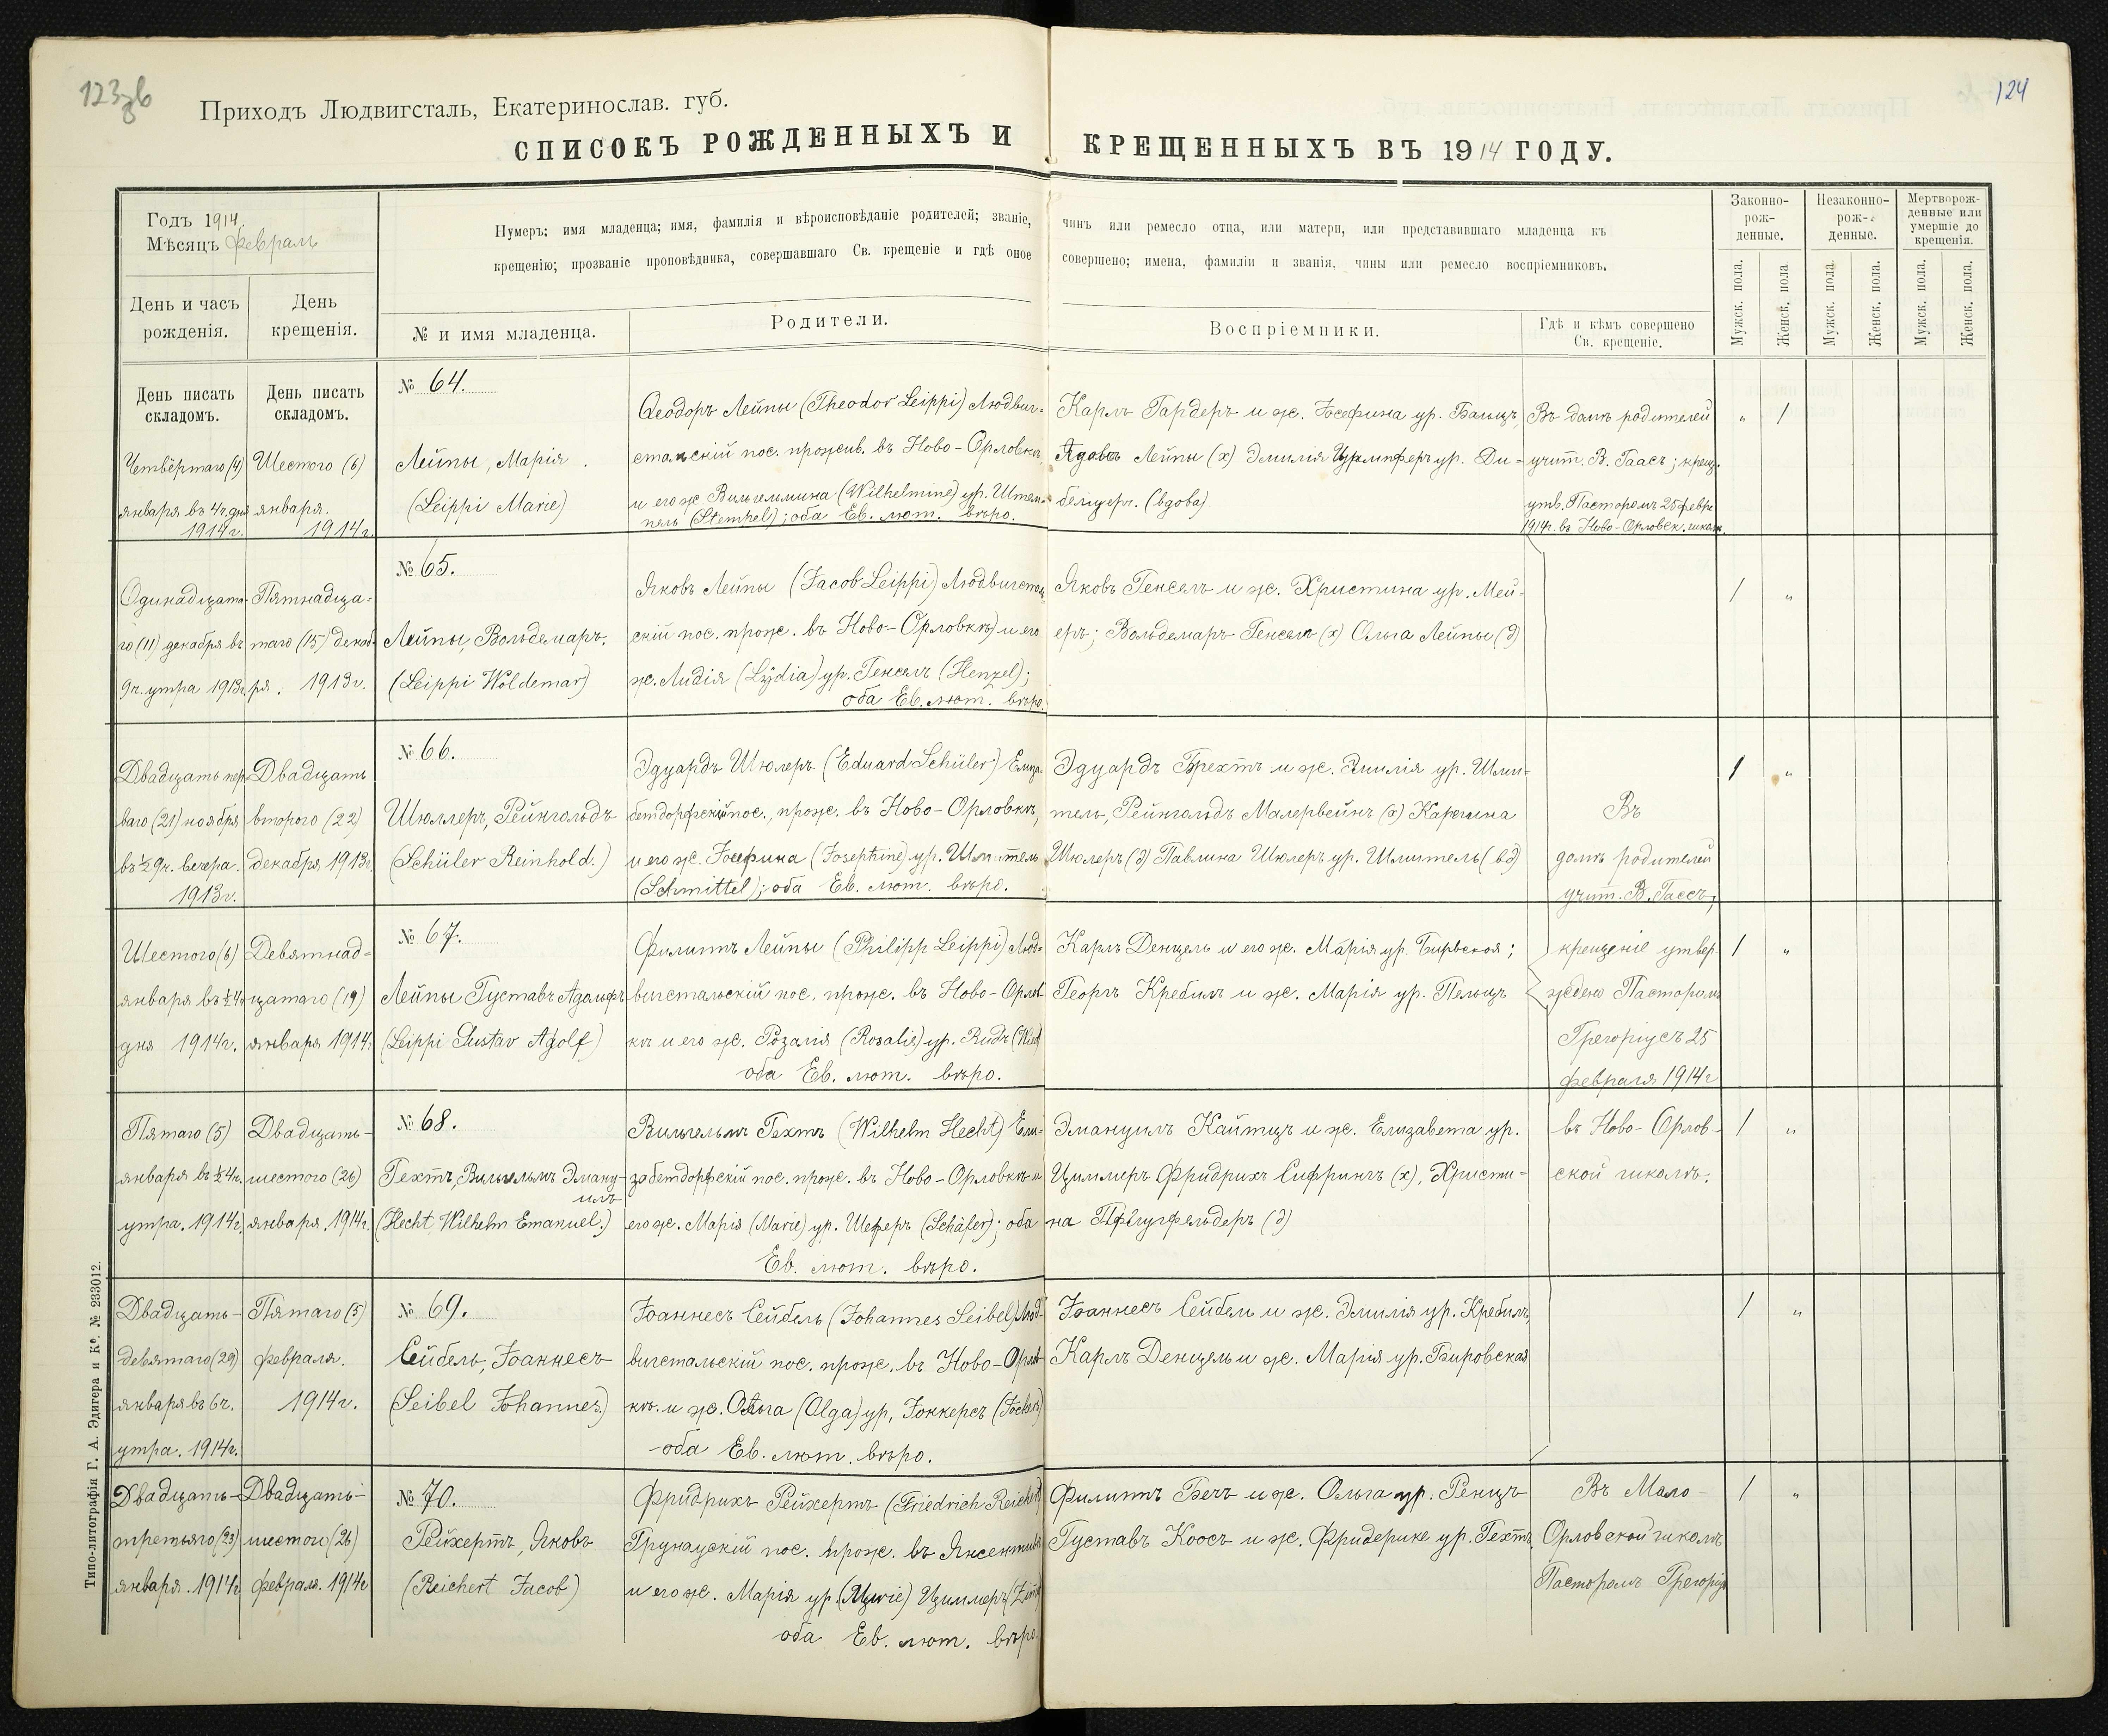 123зв
124
Приходъ Людвигсталь, Екатеринослав. губ.
СПИСОКЪ РОЖДЕННЫХЪ И КРЕЩЕННЫХЪ ВЪ 1914 ГОДУ.
Годъ 1914.
Мѣсяцъ февраль
День и часъ
рожденія.
День
крещенія.
Нумеръ; имя младенца; имя, фамилія и вѣроисповѣданіе родителей; званіе, чинъ или ремесло отца, или матери, или представившаго младенца къ
крещенію; прозваніе проповѣдника, совершавшаго Св. крещеніе и гдѣ оное совершено; имена, фамиліи и званія, чины или ремесло воспріемниковъ.
№ и имя младенца.
Родители.
Воспріемники.
Гдѣ и кѣмъ совершено
Св. крещеніе.
Законно-
рож-
денные.
Незаконно-
рож-
денные.
Мертворож-
денные или
умершіе до
крещенія.
Мужск. пола.
Женск. пола
Мужск. пола.
Женск. пола.
Мужск. пола.
Женск. пола.
День писать
складомъ.
День писать
складомъ.
Четвёртаго (4)
января въ 4ч. дня
1914г.
Шестого (6)
января.
1914г.
№ 64.
Лейпы, Марія.
(Leippi Marie)
Ѳеодоръ Лейпы (Theodor Leippi) Людвиг-
стальскій пос. прожив. въ Ново-Орловкѣ,
и его ж Вильгельмина (Wilhelmine) ур. Штем-
пель (Stemhel); оба Ев. лют. вѣро.
Карлъ Гардеръ и ж. Іосефина ур. Бальцъ,
Лейпы (х) Эмилія ур. Ди-
бельцеръ. (вдова)
Въ домѣ родителей
учит. В. Гаасъ; крещ.
утв. Пасторомъ 25 февр.
1914г. въ Ново-Орловск. школѣ.
„ 1
Одинадцата-
го (11) декабря въ
9ч. утра 1913г.
Пятнадца-
таго (15) декаб-
ря. 1913г.
№ 65.
Лейпы, Вольдемаръ.
(Leippi Woldemar)
Яковъ Лейпы (Jacob Leippi) Людвигсталь-
скій пос. прож. въ Ново-Орловкѣ и его
ж. Лидія (Lydia) ур. Генсель (Henzel);
оба Ев. лют. вѣро.
Яковъ Генсель и ж. Христина ур. Мей-
еръ; Вольдемаръ Генсель (х) Ольга Лейпы (д)
1 „
Двадцать пер-
ваго (21) ноября
въ ½ 9ч. вечера.
1913г.
Двадцать
второго (22)
декабря 1913г.
№ 66.
Шюллеръ, Рейнгольдъ
(Schüler Reinhold.)
Эдуардъ Шюлеръ (Eduard Schüler) Елиза-
бетдорфскій пос., прож. въ Ново-Орловкѣ,
и его ж. Іосефина (Josephine) ур. Шмитель
(Schmittel); оба Ев. лют. вѣро.
Эдуардъ Брехтъ и ж. Эмилія ур. Шми-
тель, Рейнгольдъ Малервейнъ (х) Каролина
Шюлеръ (д) Павлина Шюлеръ ур. Шмитель (вд)
Въ
домѣ родителей
учит. В. Гассъ;
1 „
Шестого (6)
января въ ½ 4ч.
дня 1914г.
Девятнад-
цатаго (19)
января 1914г.
№ 67.
Лейпы Густавъ Адольфъ
(Leippi Gustav Adolf)
Филиппъ Лейпы (Philipp Leippi) Люд-
вигстальскій пос. прож. въ Ново-Орлов-
кѣ и его ж. Розалія (Rosalie) ур. Видъ (Wied)
оба Ев. лют. вѣро.
Карлъ Денцель и его ж. Марія ур. Бировская;
Георгъ Кребиль и ж. Марія ур. Пельцъ
крещеніе утвер-
ждено Пасторомъ
Грегоріусъ 25
февраля 1914г
1 „
Пятаго (5)
января въ ½ 4ч.
утра. 1914г.
Двадцать-
шестого (26)
января. 1914г.
№ 68.
Гехтъ, Вильгельмъ Эману-
илъ
(Hecht, Wilhelm Emanuel.)
Вильгельмъ Гехтъ (Wilhelm Hecht) Ели-
забетдорфскій пос. прож. въ Ново-Орловкѣ и
его ж. Марія (Marie) ур. Шеферъ (Schäfer); оба
Ев. лют. вѣро.
Эмануилъ Кайтцъ и ж. Елизавета ур.
Циммеръ Фридрихъ Сифрингъ (х), Христи-
на Пфлугфельдеръ (д)
въ Ново-Орлов-
ской школѣ.
1 „
Двадцать-
девятаго (29)
января въ 6ч.
утра. 1914г.
Пятаго (5)
февраля.
1914г.
№ 69.
Сейбель, Іоаннесъ
(Seibel Johannes.)
Іоаннесъ Сейбель (Johannes Seibel) Люд-
вигстальскій пос. прож. въ Ново-Орлов-
кѣ. и ж. Ольга (Olga) ур. Іоккерсъ (Jockers)
оба Ев. лют. вѣро.
Іоаннесъ Сейбель и ж. Эмилія ур. Кребиль,
Карлъ Денцель и ж. Марія ур. Бировская
1 „
Двадцать-
третьяго (23)
января. 1914г
Двадцать-
шестого (26)
февраля. 1914г
№ 70.
Рейхертъ, Яковъ
(Reichert Jacob)
Фридрихъ Рейхертъ (Friedrich Reichert)
Грунаускій пос. прож. въ
и его ж. Марія ур. (Marie) Циммеръ
оба Ев. лют. вѣро.
Филиппъ Бечъ и ж. Ольга ур. Ренцъ
Густавъ Коосъ и ж. Фридерике ур. Гехтъ.
Въ Мало-
Орловской школѣ
Пасторомъ Грегоріусъ
1 „
Типо-литографія Г. А. Эдигера и Кº. № 233012.